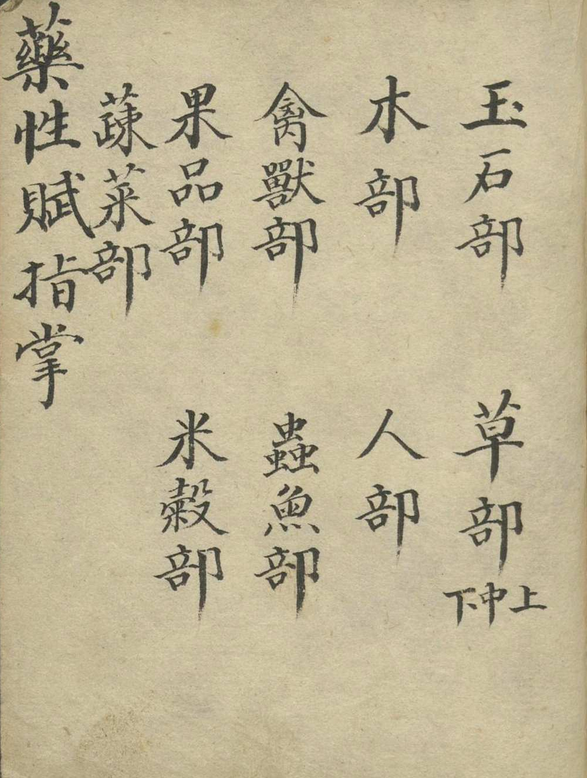 玉石部
草部
上中下
木部
人部
禽獸部
蟲魚部
果品部
米穀部
蔬菜部
藥性賦指掌